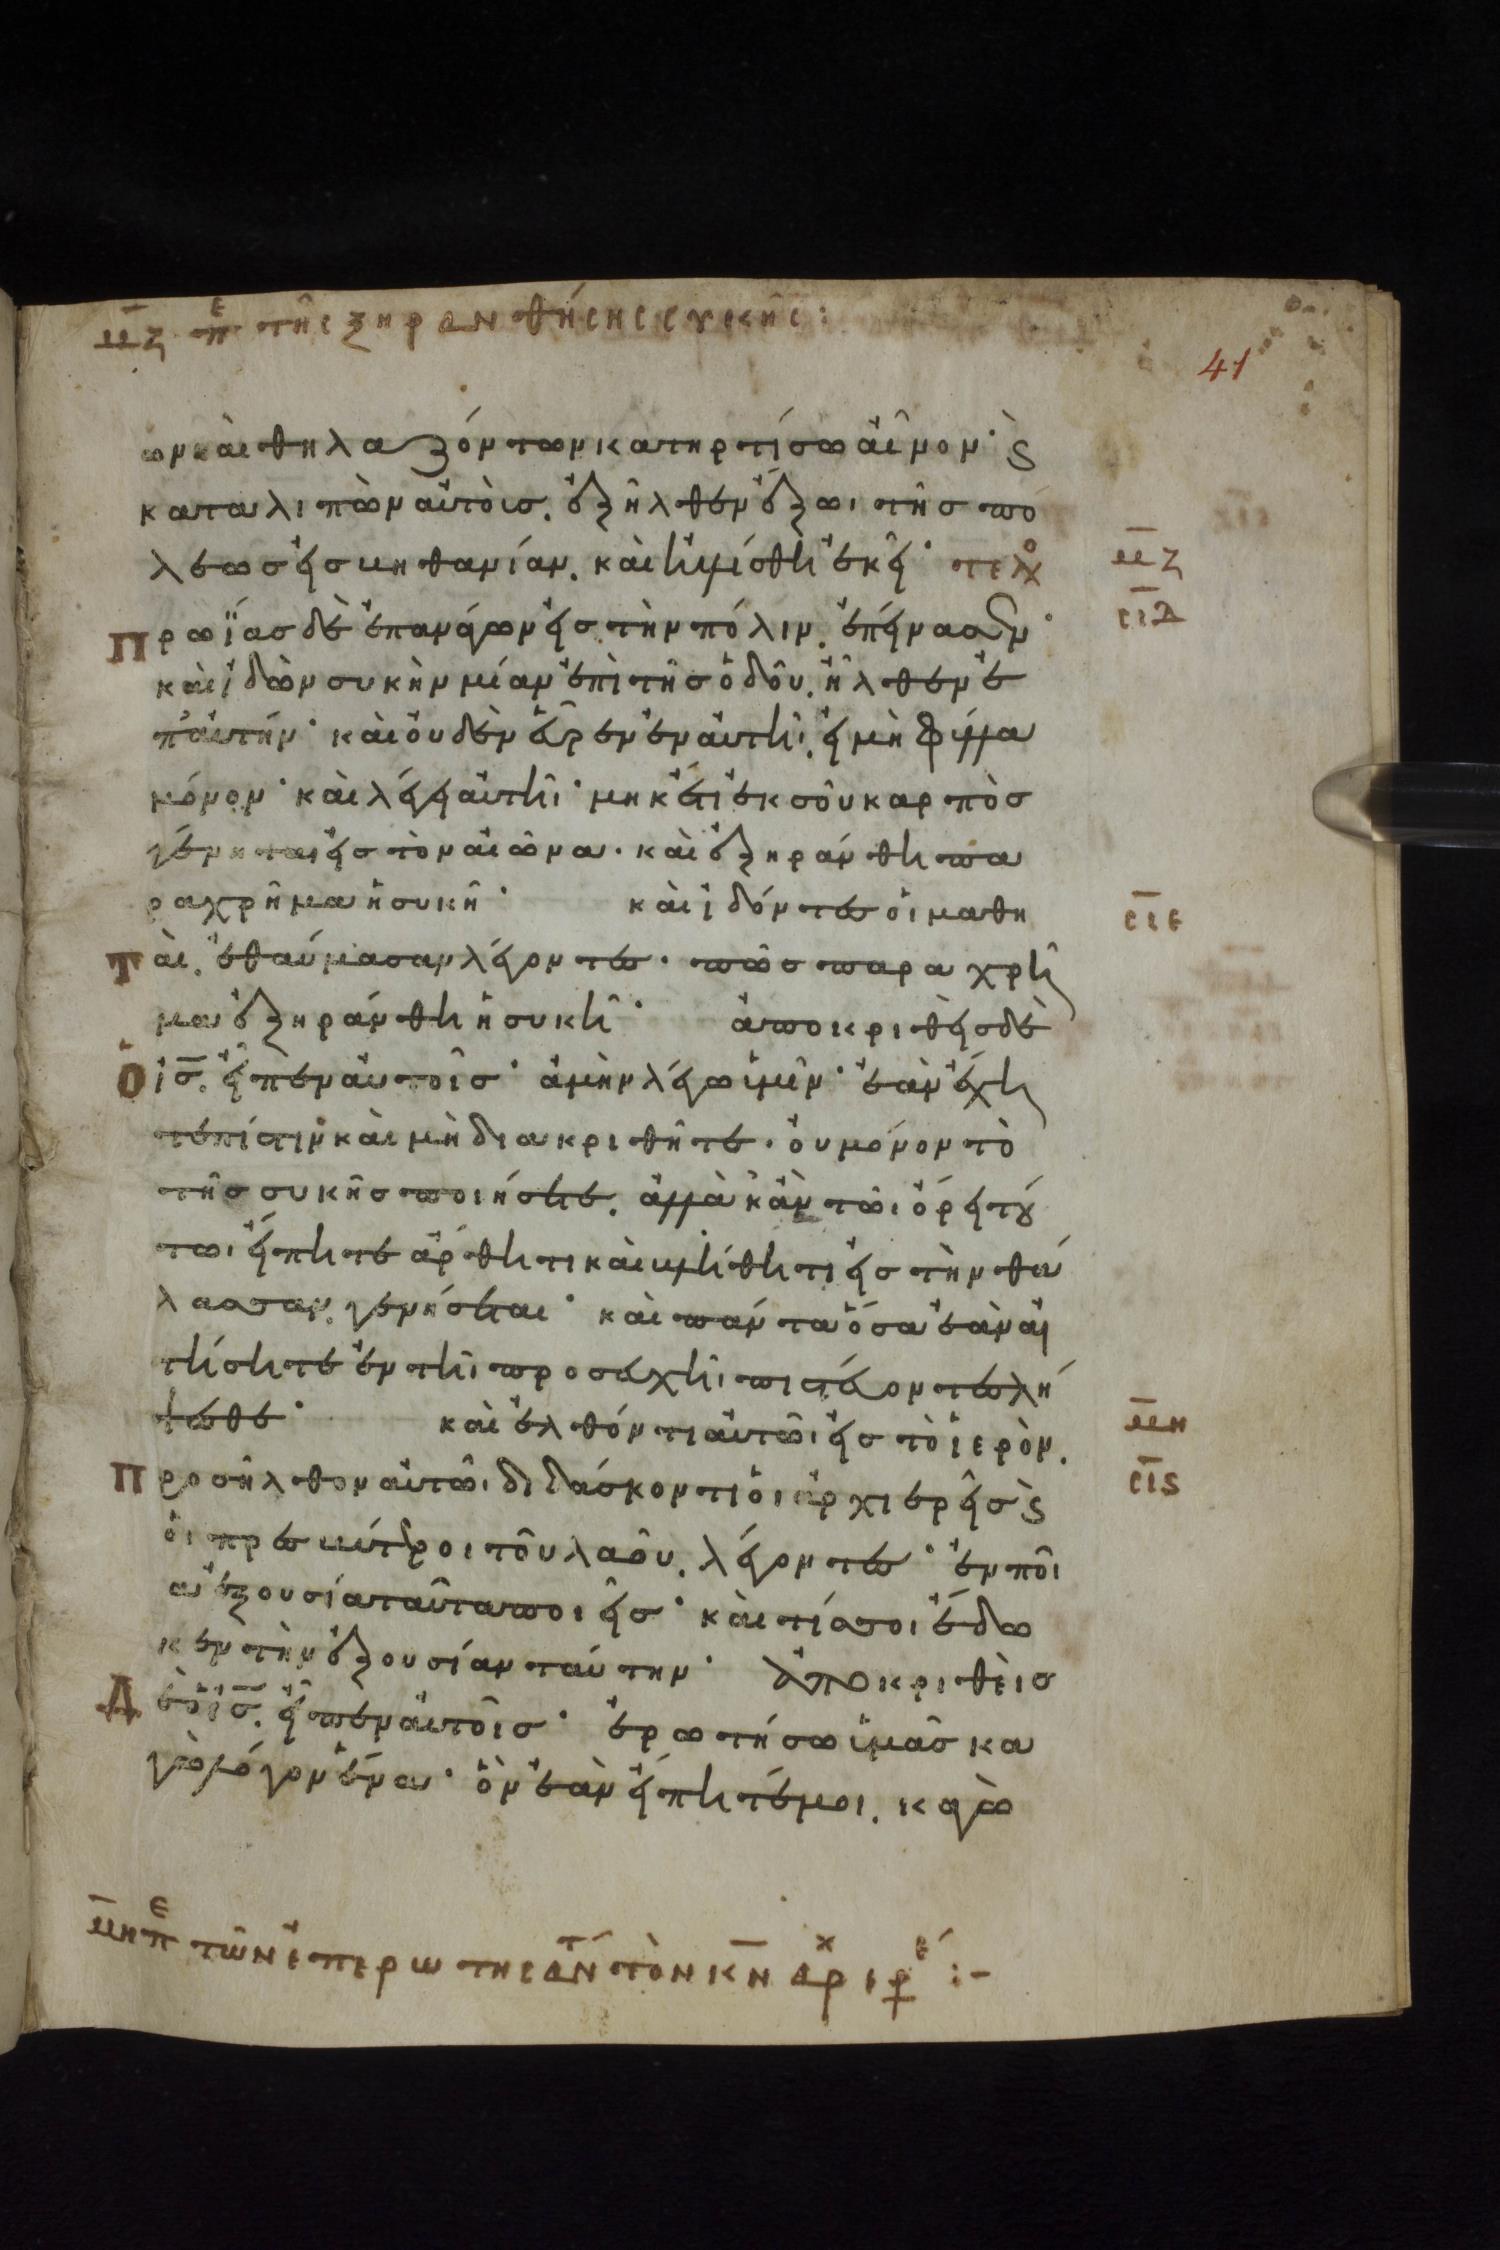 μζ πε της ξηρανθήσης συκης :
41
ων καὶ θηλαζόντων κατηρτίσω αἶνον· ϛ
καταλιπὼν αὐτοὺς, ἐξῆλθεν ἔξωι τῆς πό
λεως εἰς βηθανίαν, καὶ ηὐλίσθη ἐκεῖ· τελος
μζ
σιδ
Πρωΐας δὲ ἐπανάγων εἰς τὴν πόλιν, ἐπείνασεν·
καὶ ἰδὼν συκὴν μίαν ἐπὶ τῆς ὁδοῦ, ἦλθεν ἐ
π' αὐτήν· καὶ οὐδὲν εὗρεν ἐν αὐτῆι, εἰ μὴ φύλλα
μόνον· καὶ λέγει αὐτῆι· μηκέτι ἐκ σοῦ καρπὸς
γένηται εἰς τὸν αἰῶνα· καὶ ἐξηράνθη πα
ραχρῆμα ἡ συκῆ· καὶ ἰδόντες οἱ μαθη
σιε
Ταὶ, ἐθαύμασαν λέγοντες· πῶς παραχρῆ
μα ἐξηράνθη ἡ συκῆ· ἀποκριθεὶς δὲ
Ὁ ις, εἶπεν αὐτοῖς· ἀμὴν λέγω ὑμῖν· ἐὰν ἔχη
τε πίστιν καὶ μὴ διακριθῆτε· οὐ μόνον τὸ
τῆς συκῆς ποιήσετε, ἀλλὰ κἂν τῶι ὄρει τού
τωι εἴπητε ἄρθητι καὶ βλήθητι εἰς τὴν θά
λασσαν, γενήσεται· καὶ πάντα ὅσα ἐὰν αἰ
τήσητε ἐν τῆι προσευχῆι πιστεύοντες λή
ψεσθε· καὶ ἐλθόντι αὐτῶι εἰς τὸ ἱερὸν,
μη
σιϛ
Προσῆλθον αὐτῶι διδάσκοντι οἱ ἀρχιερεῖς ϛ
οἱ πρεσβύτεροι τοῦ λαοῦ, λέγοντες· ἐν ποί
α ἐξουσία ταῦτα ποιεῖς· καὶ τίς σοι ἔδω
κεν τὴν ἐξουσίαν ταύτην· ἀποκριθεὶς
Δὲ ὁ ις, εἶπεν αὐτοῖς· ἐρωτήσω ὑμᾶς κα
γὼ λόγον ἕνα· ὃν ἐὰν εἴπητέ μοι, καγὼ
μη πε τῶν ἐπερωτησάντ τὸν κν ἀρχιερέ :-